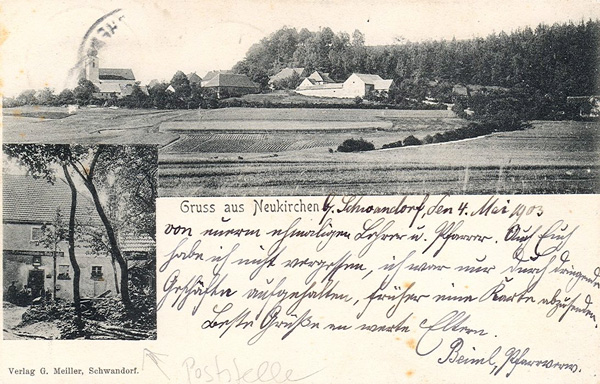 Gruss aus Neukirchen b/ Schwandorf, den 4. Mai 1903
von euerm ehmaligen Lehrer u. Pfarrer. Auch Euch
habe ich nicht vergessen, ich war nur durch dringende
Geschäfte aufgehalten, früher eine Karte abzusenden.
Beste Grüße an werte Eltern.
Pfarrverw.
Verlag G. Meiller, Schwandorf.
Poststelle